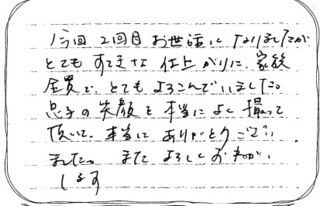 今回2回目お世話になりましたが
とてもすてきな仕上がりに、家族
全員で、とてもよろこんでいました。
息子の笑顔を本当によく撮って
頂いて、本当にありがとうござい
ました。またよろしくおねがい
します